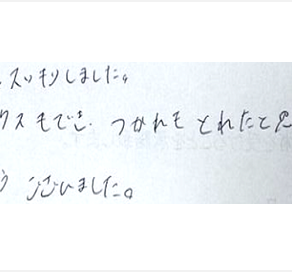 、スッキリしました。
クスもでき、つかれもとれたと思
う ございました。